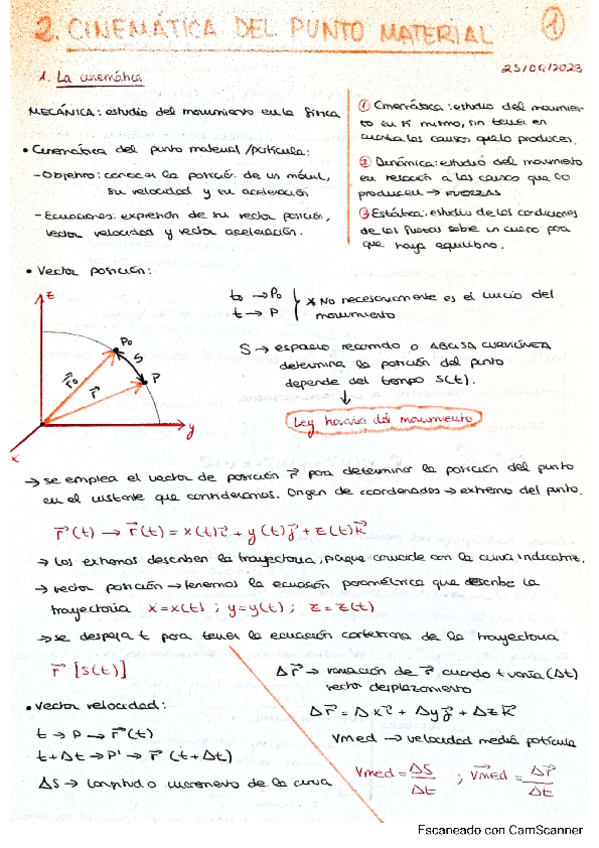 2. CINEMÁTICA DEL PUNTO MATERIAL
1
25/09/2023
1. La cinemática
MECÁNICA: estudio del movimiento en la física
• Cinemática del punto material/partícula:
- Objetivo: conocer la posición de un móvil,
su velocidad y su aceleración
- Ecuaciones: expresión de su vector posición,
vector velocidad y vector aceleración.
① Cinemática: estudio del movimien-
to en sí mismo, sin tener en
cuenta las causas que lo producen.
② Dinámica: estudio del movimiento
en relación a las causas que lo
producen → FUERZAS
③ Estática: estudio de las condiciones
de las fuerzas sobre un cuerpo para
que haya equilibrio.
• Vector posición:
z
P₀
S
P
r⃗₀
r⃗
y
x
t₀ → P₀
t → P
* No necesariamente es el inicio del
movimiento
S → espacio recorrido o ABCISA CURVILÍNEA
determina la posición del punto
depende del tiempo S(t).
↓
Ley horaria del movimiento
→ se emplea el vector de posición r⃗ para determinar la posición del punto
en el instante que consideramos. Origen de coordenadas → extremo del punto.
r⃗(t) → r⃗(t) = x(t)i⃗ + y(t)j⃗ + z(t)k⃗
→ los extremos describen la trayectoria, pq que coincide con la curva indicatriz.
→ vector posición → tenemos la ecuación paramétrica que describe la
trayectoria x = x(t) ; y = y(t) ; z = z(t)
→ se despeja t para tener la ecuación cartesiana de la trayectoria
r⃗ [s(t)]
• Vector velocidad:
t → P → r⃗(t)
t+Δt → P' → r⃗(t+Δt)
ΔS → longitud o incremento de la curva
Δr⃗ → variación de r⃗ cuando t varía (Δt)
vector desplazamiento
Δr⃗ = Δxi⃗ + Δyj⃗ + Δzk⃗
Vmed → velocidad media partícula
Vmed = ΔS/Δt ; V⃗med = Δr⃗/Δt
Escaneado con CamScanner